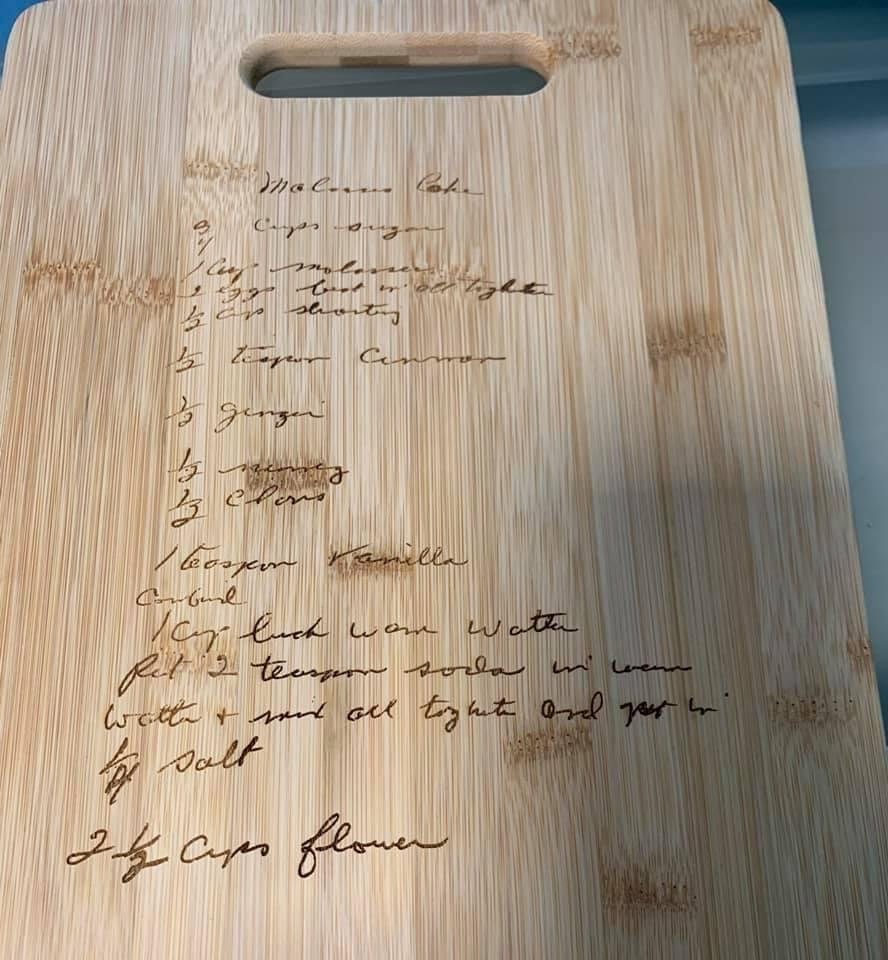 Molasses Cake
3/4 Cups sugar
1 Cup molasses
2 eggs beat in all toghter
1/2 cup shorting
1/2 teaspon Cinnmon
1/2 ginger
1/2
1/2 Clovs
1 teaspon Vanilla
1 Cup luck warm Watter
Put 2 teaspon soda in warm
Watter + mix all toghter and put in
1/4 salt
2 1/2 Cups flower